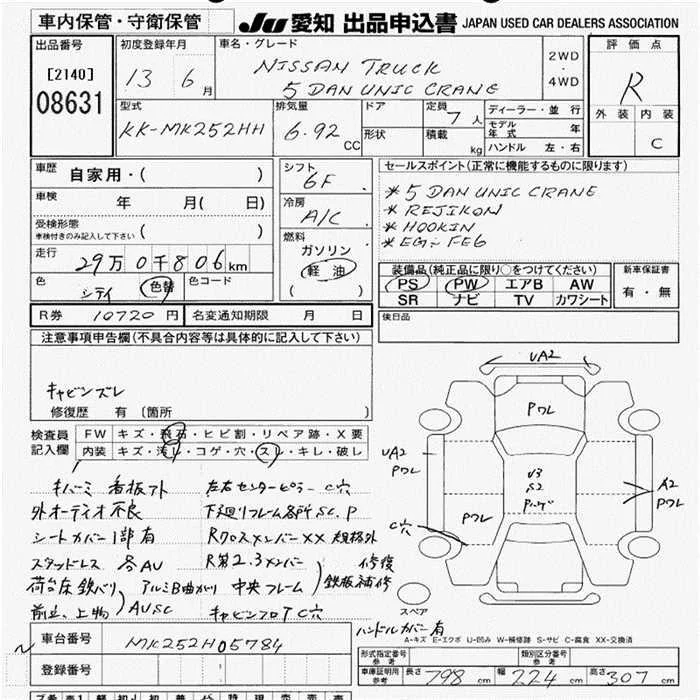 車内保管・守衛保管
JU 愛知 出品申込書 JAPAN USED CAR DEALERS ASSOCIATION
出品番号
[2140]
08631
初度登録年月
13年 6月
車名・グレード
NISSAN TRUCK
5 DAN UNIC CRANE
2WD
・
4WD
評価点
R
外装 内装
C
型式
KK-MK252HH
排気量
6.92 CC
ドア
形状
定員
7人
積載
kg
ディーラー・並行
モデル年式 年
ハンドル 左・右
車歴
自家用・( )
車検
年 月( 日)
受検形態
車検付きのみ記入して下さい ( )
走行
29万0千806km
色
シティ
色替
色コード
シフト
6F
冷房
A/C
燃料
ガソリン
軽油
( )
セールスポイント(正常に機能するものに限ります)
*5 DAN UNIC CRANE
*REJIKON
*HOOKIN
*EG:FE6
装備品(純正品に限り○をつけてください)
PS PW エアB AW
SR ナビ TV カワシート
新車保証書
有・無
R券 10720円
名変通知期限 月 日
後日品
注意事項申告欄(不具合内容等は具体的に記入して下さい)
キャビンズレ
修復歴 有〔箇所
検査員
記入欄
FW キズ・飛石・ヒビ割・リペア跡・X要
内装 キズ・汚れ・コゲ・穴・スレ・キレ・破レ
看板アト 左右センターピラー C穴
外オーディオ不良 下廻りフレーム各所SC.P
シートカバー1部有 Rクロスメンバーxx 規格外
スタッドレス 各AU R第2.3メンバー 修復
荷台床鉄バリ アルミB曲がり 中央フレーム 鉄板補修
前立、上物 AUSC キャビンフロアC穴
ハンドルカバー有
UA2
PワL
UA2
PワL
U3
S2
A2
PワL
PワL
C穴
スペア
A-キズ E-エクボ U-凹み W-補修跡 S-サビ C-腐食 XX-交換済
車台番号
MK252H05784
登録番号
形式指定番号
参考
類別区分番号
参考
車庫証明用
参考
長さ 798 cm 幅 224 cm 高さ 307 cm